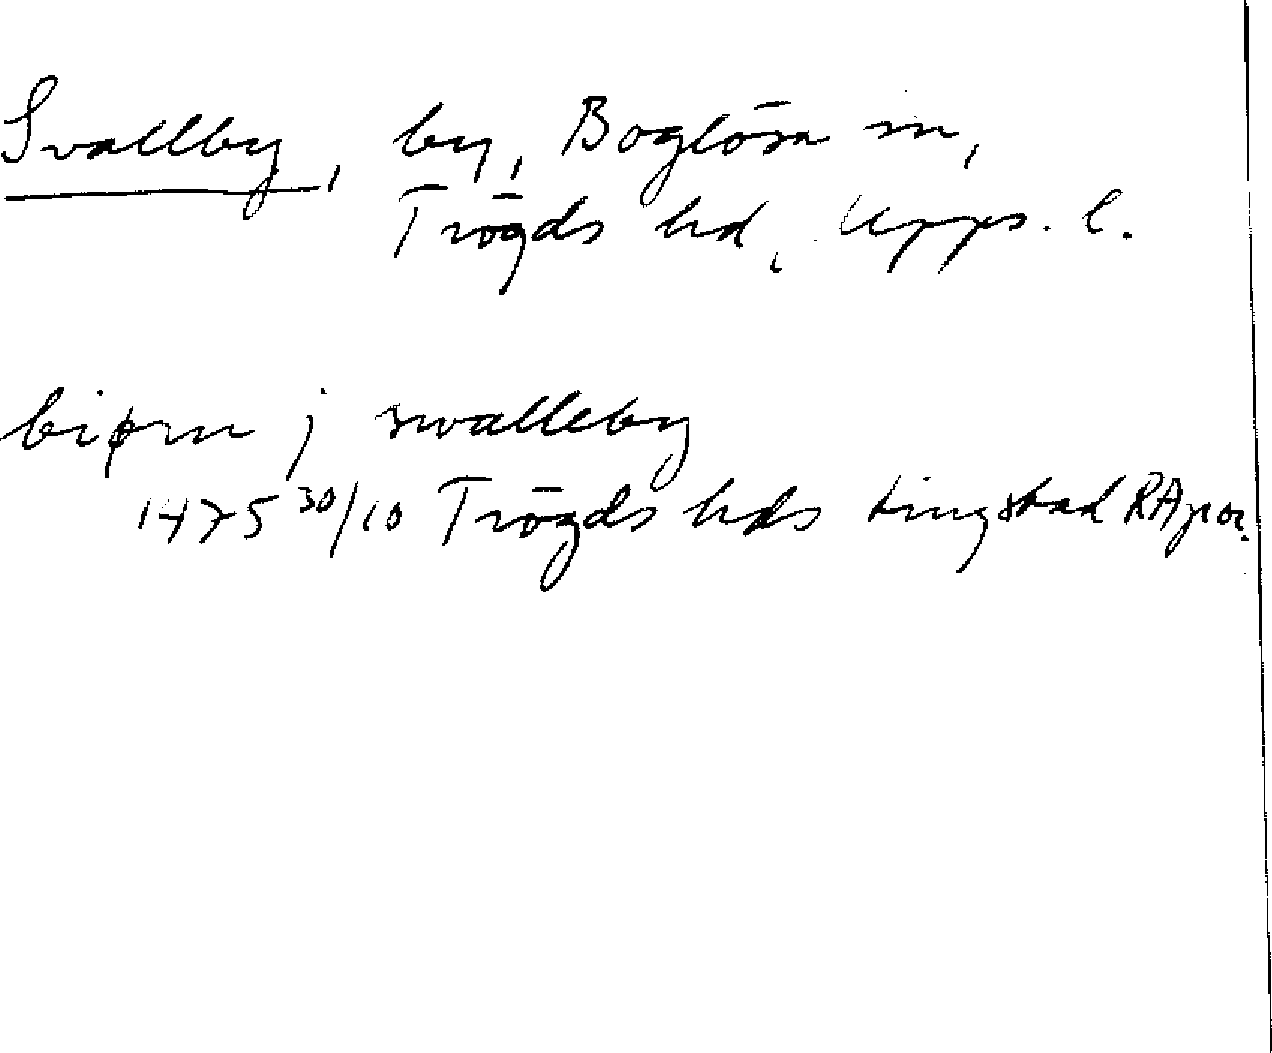 Svallby, by, Boglösa sn,
Trögds hd, Upps. l.
biørn j swalleby
1475 30/10 Trögds hds tingstad RAp or.